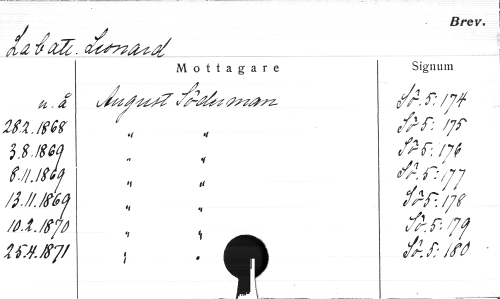 Brev.
Labatt. Leonard
Mottagare Signum
u. å August Söderman Sö. 5: 174
28.2.1868 " " Sö. 5: 175
3.8.1869 " " Sö. 5: 176
8.11.1869 " " Sö. 5: 177
13.11.1869 " " Sö 5: 178
10.2.1870 " " Sö. 5: 179
25.4.1871 " " Sö. 5: 180